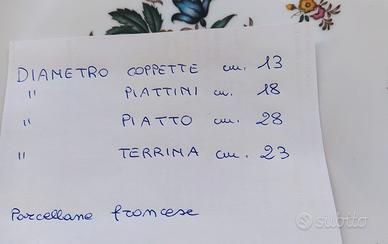 DIAMETRO COPPETTE cm. 13
" PIATTINI cm. 18
" PIATTO cm. 28
" TERRINA cm. 23
Porcellane francese
subito